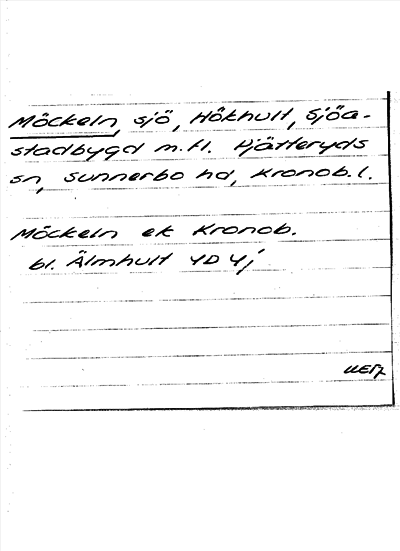 Möckeln, sjö, Hökhult, Sjöa-
stadbygd m.fl. Hjätteryds
sn, Sunnerbo hd, Kronob.l.
Möckeln ek Kronob.
bl. Älmhult 4D 4j